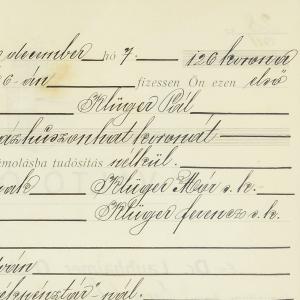 december hó 7. 126 korona
6-án fizessen Ön ezen első
Klüger Pál
százhuszonhat koronát
számolásba tudósítás nélkül.
nak Klüger Mór s.k.
Klüger ferencz s.k.